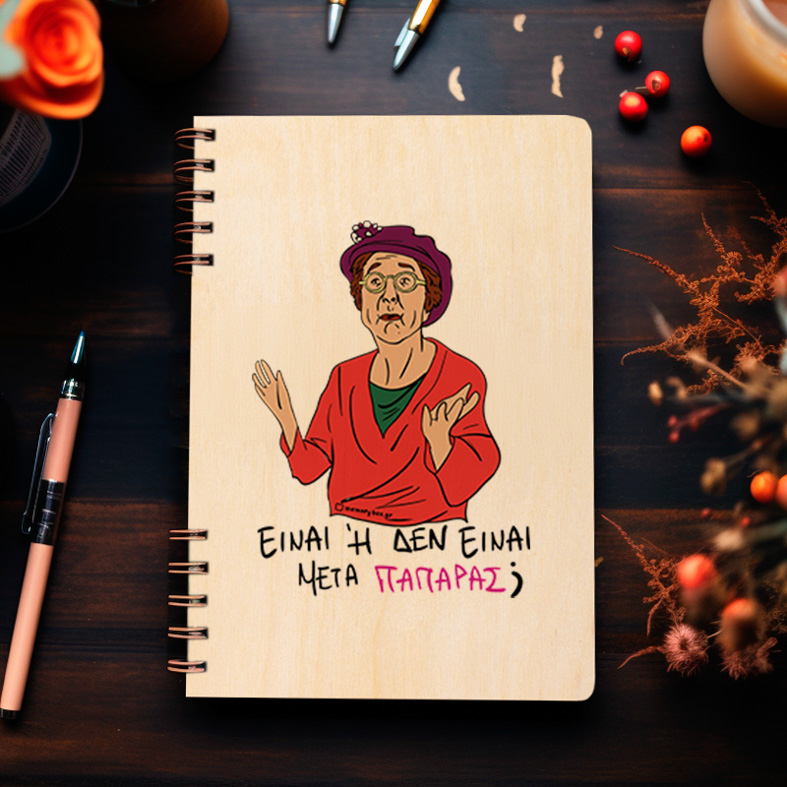 memorybox.gr
ΕΙΝΑΙ Ή ΔΕΝ ΕΙΝΑΙ
ΜΕΤΑ ΠΑΠΑΡΑΣ;